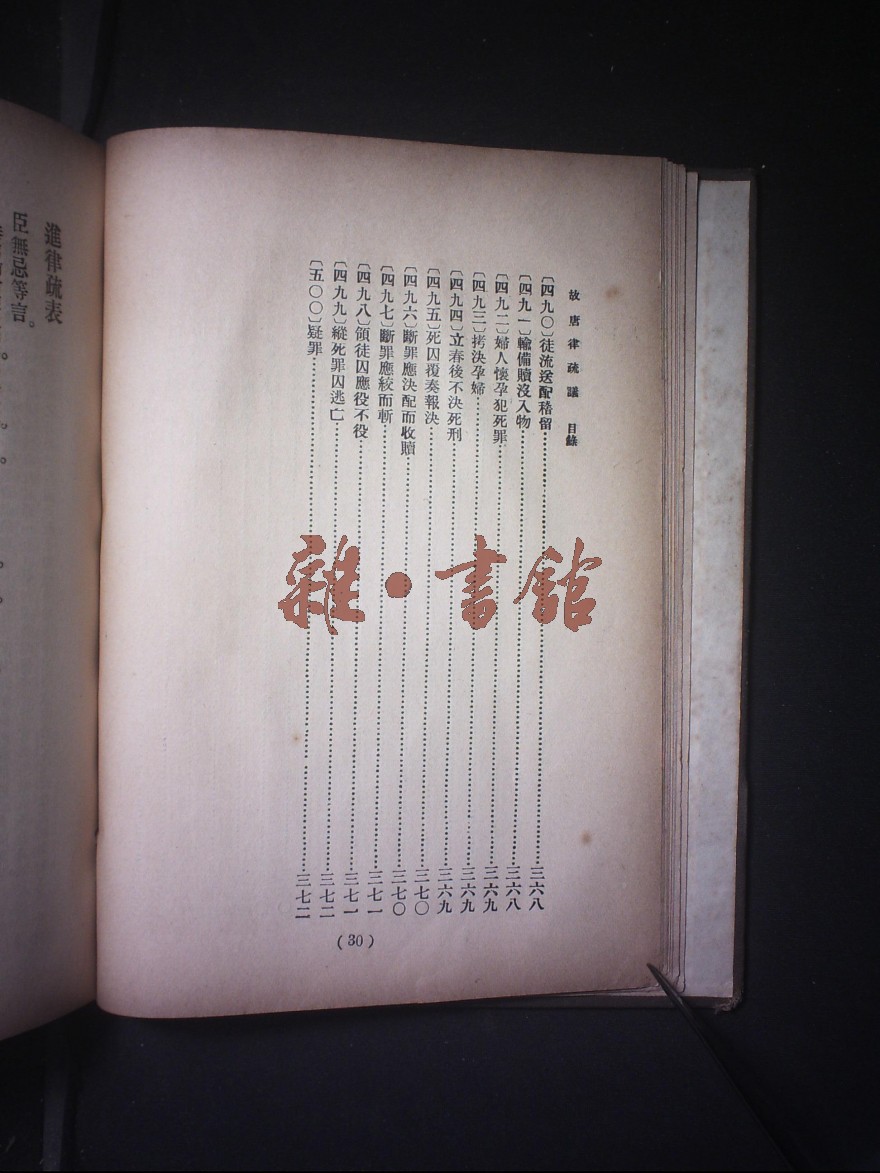 故唐律疏議 目錄
〔四九〇〕徒流送配稽留……三六八
〔四九一〕輸備贖沒入物……三六八
〔四九二〕婦人懷孕犯死罪……三六九
〔四九三〕拷決孕婦……三六九
〔四九四〕立春後不決死刑……三六九
〔四九五〕死囚覆奏報決……三七〇
〔四九六〕斷罪應決配而收贖……三七〇
〔四九七〕斷罪應絞而斬……三七一
〔四九八〕領徒囚應役不役……三七一
〔四九九〕縱死罪囚逃亡……三七二
〔五〇〇〕疑罪……三七二
(30)
進律疏表
臣無忌等言。
雜·書館